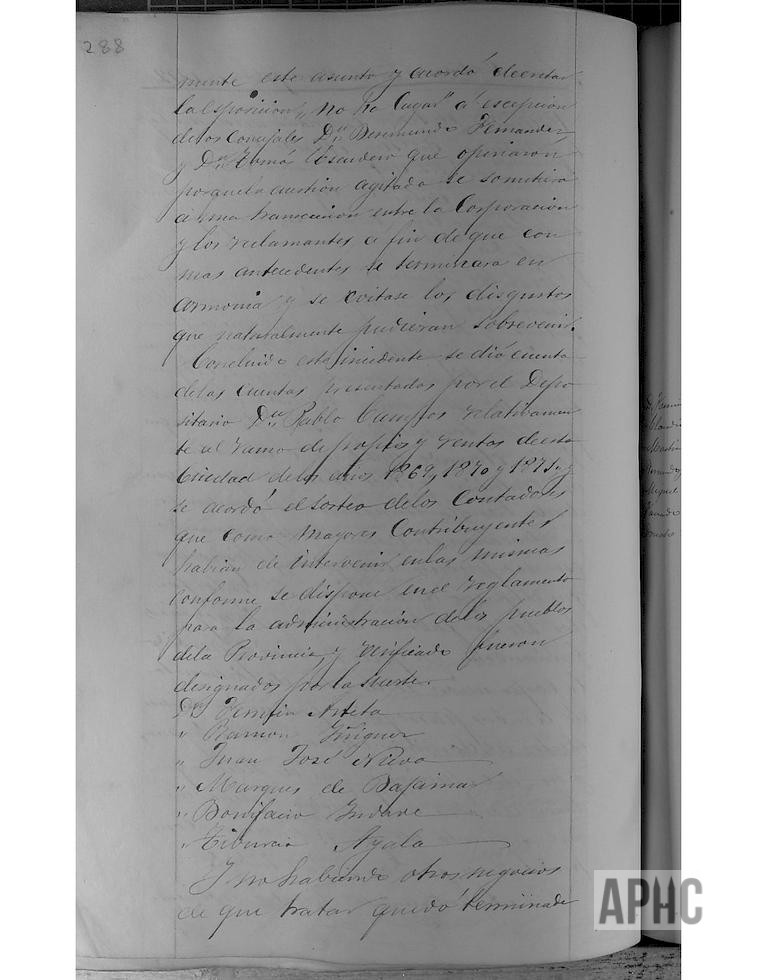 288
mente este asunto y acordó decretar
la esposicion, "no ha lugar" á escepcion
de los Concejales Dn. Beremundo Fernandez
y Dn. Tomás Escudero que opinaron
porque la cuestion agitada se sometiera
á una transaccion entre la Corporacion
y los reclamantes a fin de que con
mas antecedentes se terminara en
armonia y se evitase los disgustos
que naturalmente pudieran sobrevenir.
Concluido este incidente se dió cuenta
de las cuentas presentadas por el Depo-
sitario Dn. Pablo Campos relativamen-
te al ramo de propios y rentas de esta
Ciudad de los años 1869, 1870 y 1871, y
se acordó el sorteo de los Contadores
que como mayores Contribuyentes
habian de intervenir en las mismas
conforme se dispone en el reglamento
para la administración de los pueblos
de la Provincia, y verificado fueron
designados por la suerte.
Dn. Fermin Arteta
" Ramon Iñiguez
" Juan José Nieva
" Marques de Bajamar
" Bonifacio Indave
" Tiburcio Ayala
Y no habiendo otros negocios
de que tratar quedó terminado
APHC